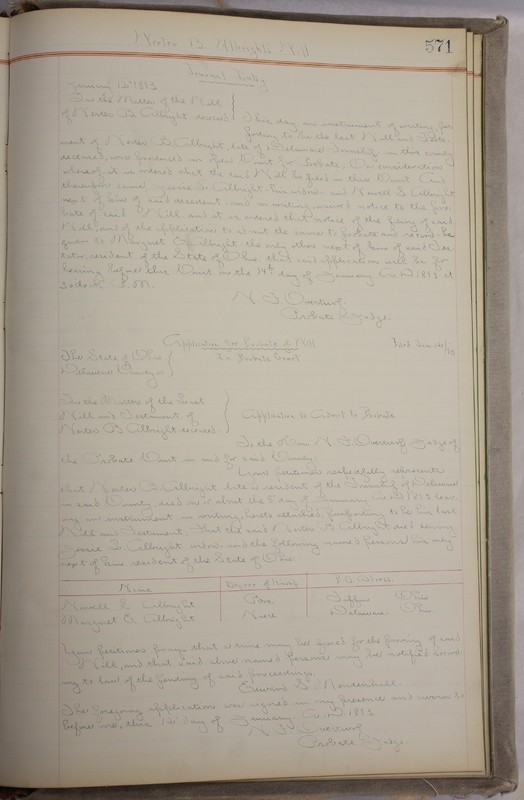 Albright's Will
571
Journal Entry
January 12
In the Matter of the Will
of B. Albright deceased
This day an instrument of writing, pur-
porting to be the last Will and Testa-
ment of B. Albright, late of Delaware in this county
deceased, was produced in open Court for Probate. On consideration
whereof, it is ordered that the said Will be filed in this Court. And
thereupon came Albright his widow and Albright
next of kin of said decedent, and in writing, waived notice to the Pro-
bate of said Will, and it is ordered that notice of the filing of said
Will, and of the application to admit the same to Probate and record, be
given to Margaret Albright the only other next of kin of said Tes-
tator, resident of the State of Ohio, that said application will be for
hearing before this Court on the 14th day of January A.D. at
o'clock P.M.
Overturf
Probate Judge.
Application for Probate of Will
In Probate Court
Filed Jan
The State of Ohio
Delaware County ss
In the Matter of the Last
Will and Testament of
B. Albright deceased
Application to Admit to Probate
To the Hon. Overturf Judge of
the Probate Court in and for said County:
Your petitioner respectfully represents
that B. Albright late a resident of the of Delaware
in said County, died on or about the day of January A.D. leav-
ing an instrument in writing, hereto attached, purporting to be his last
Will and Testament; That the said B. Albright died leaving
Albright widow and the following named persons his only
next of kin resident of the State of Ohio
Name Degree of Kinship P.O. Address.
Albright Ohio
Margaret Albright Delaware Ohio
Your petitioner prays that a time may be fixed for the proving of said
Will, and that said above named persons may be notified accord-
ing to law of the pendency of said proceedings.
Mendenhall
The foregoing application was signed in my presence and sworn to
before me, this 12 day of January A.D.
Overturf
Probate Judge.